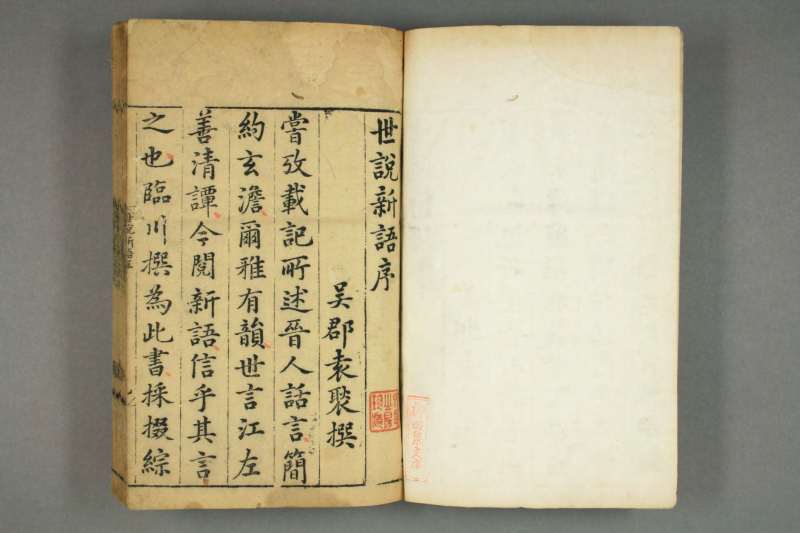 世說新語序
吴郡袁褧撰
嘗攷載記所述晉人話言簡
約玄澹爾雅有韻世言江左
善清譚今閱新語信乎其言
之也臨川撰為此書採掇綜